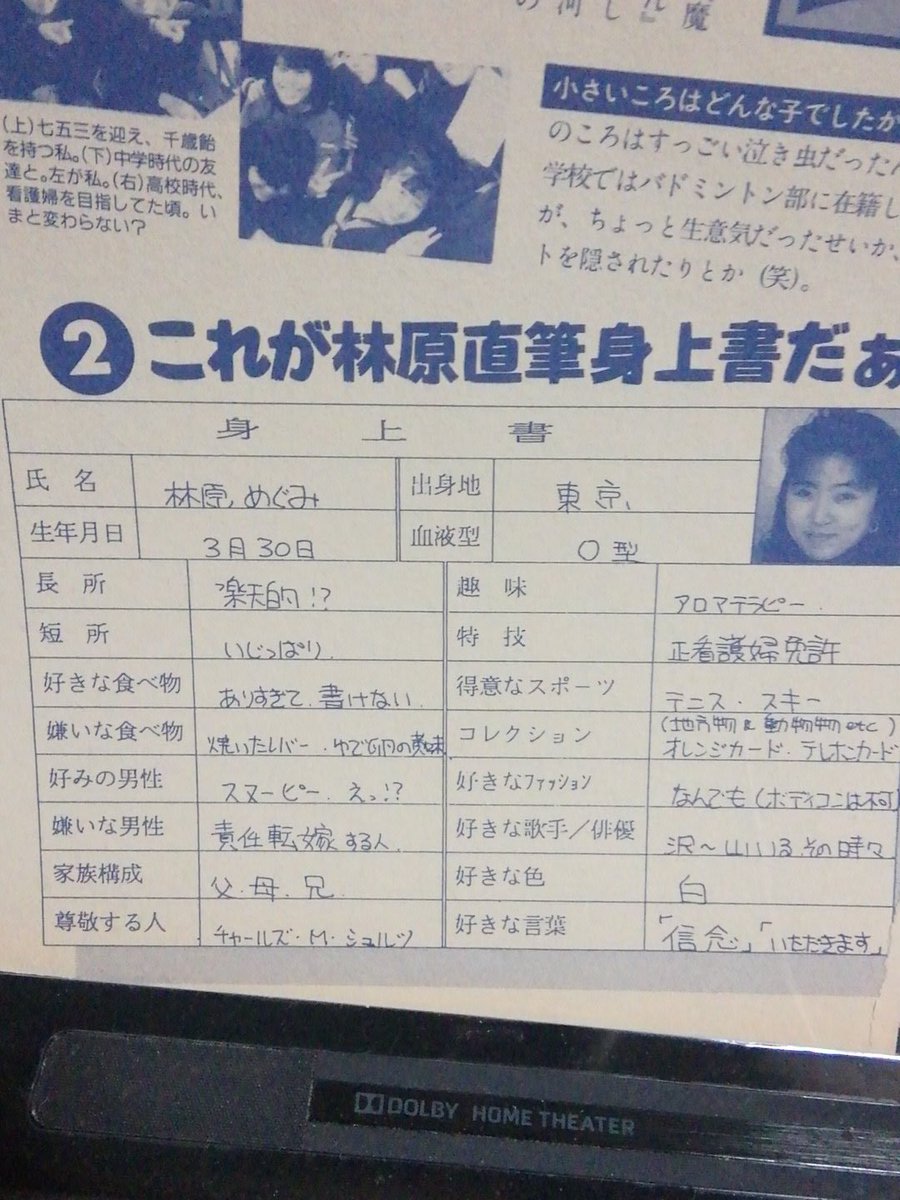 の河し』魔
小さいころはどんな子でしたか
のころはすっごい泣き虫だったん
学校ではバドミントン部に在籍し
が、ちょっと生意気だったせいか、
トを隠されたりとか(笑)。
(上)七五三を迎え、千歳飴
を持つ私。(下)中学時代の友
達と。左が私。(右)高校時代、
看護婦を目指してた頃。い
まと変わらない?
2 これが林原直筆身上書だぁ
身上書
氏名 林原めぐみ 出身地 東京
生年月日 3月30日 血液型 O型
長所 楽天的!? 趣味 アロマテラピー
短所 いじっぱり 特技 正看護婦免許
好きな食べ物 ありすぎて、書けない 得意なスポーツ テニス・スキー
嫌いな食べ物 焼いたレバー・ゆで卵の黄味 コレクション (地方物&動物物etc)
オレンジカード・テレホンカード
好みの男性 スヌーピー、えっ!? 好きなファッション なんでも(ボディコンは不可)
嫌いな男性 責任転嫁する人 好きな歌手/俳優 沢〜山いる、その時々
家族構成 父、母、兄 好きな色 白
尊敬する人 チャールズ・M・シュルツ 好きな言葉 「信念」「いただきます」
DOLBY HOME THEATER